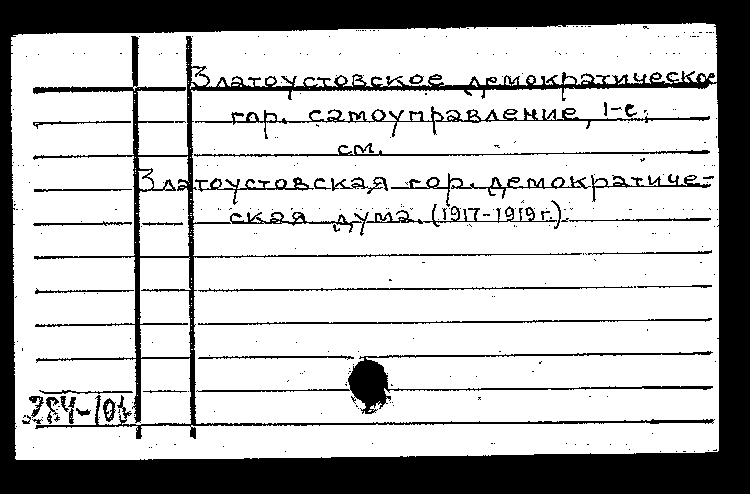 Златоустовское демократическое
гор. самоуправление, 1-е;
см.
Златоустовская гор. демократиче-
ская дума. (1917-1919 г.).